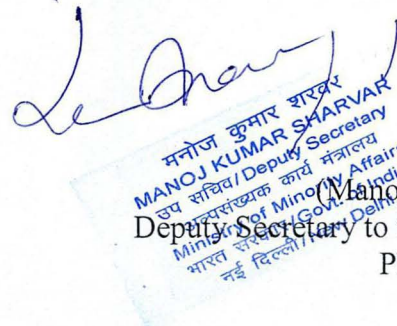 मनोज कुमार शरवर
MANOJ KUMAR SHARVAR
उप सचिव/Deputy Secretary
अल्पसंख्यक कार्य मंत्रालय
Ministry of Minority Affairs
भारत सरकार/Govt. of India
नई दिल्ली/New Delhi
(Mano
Deputy Secretary to
P